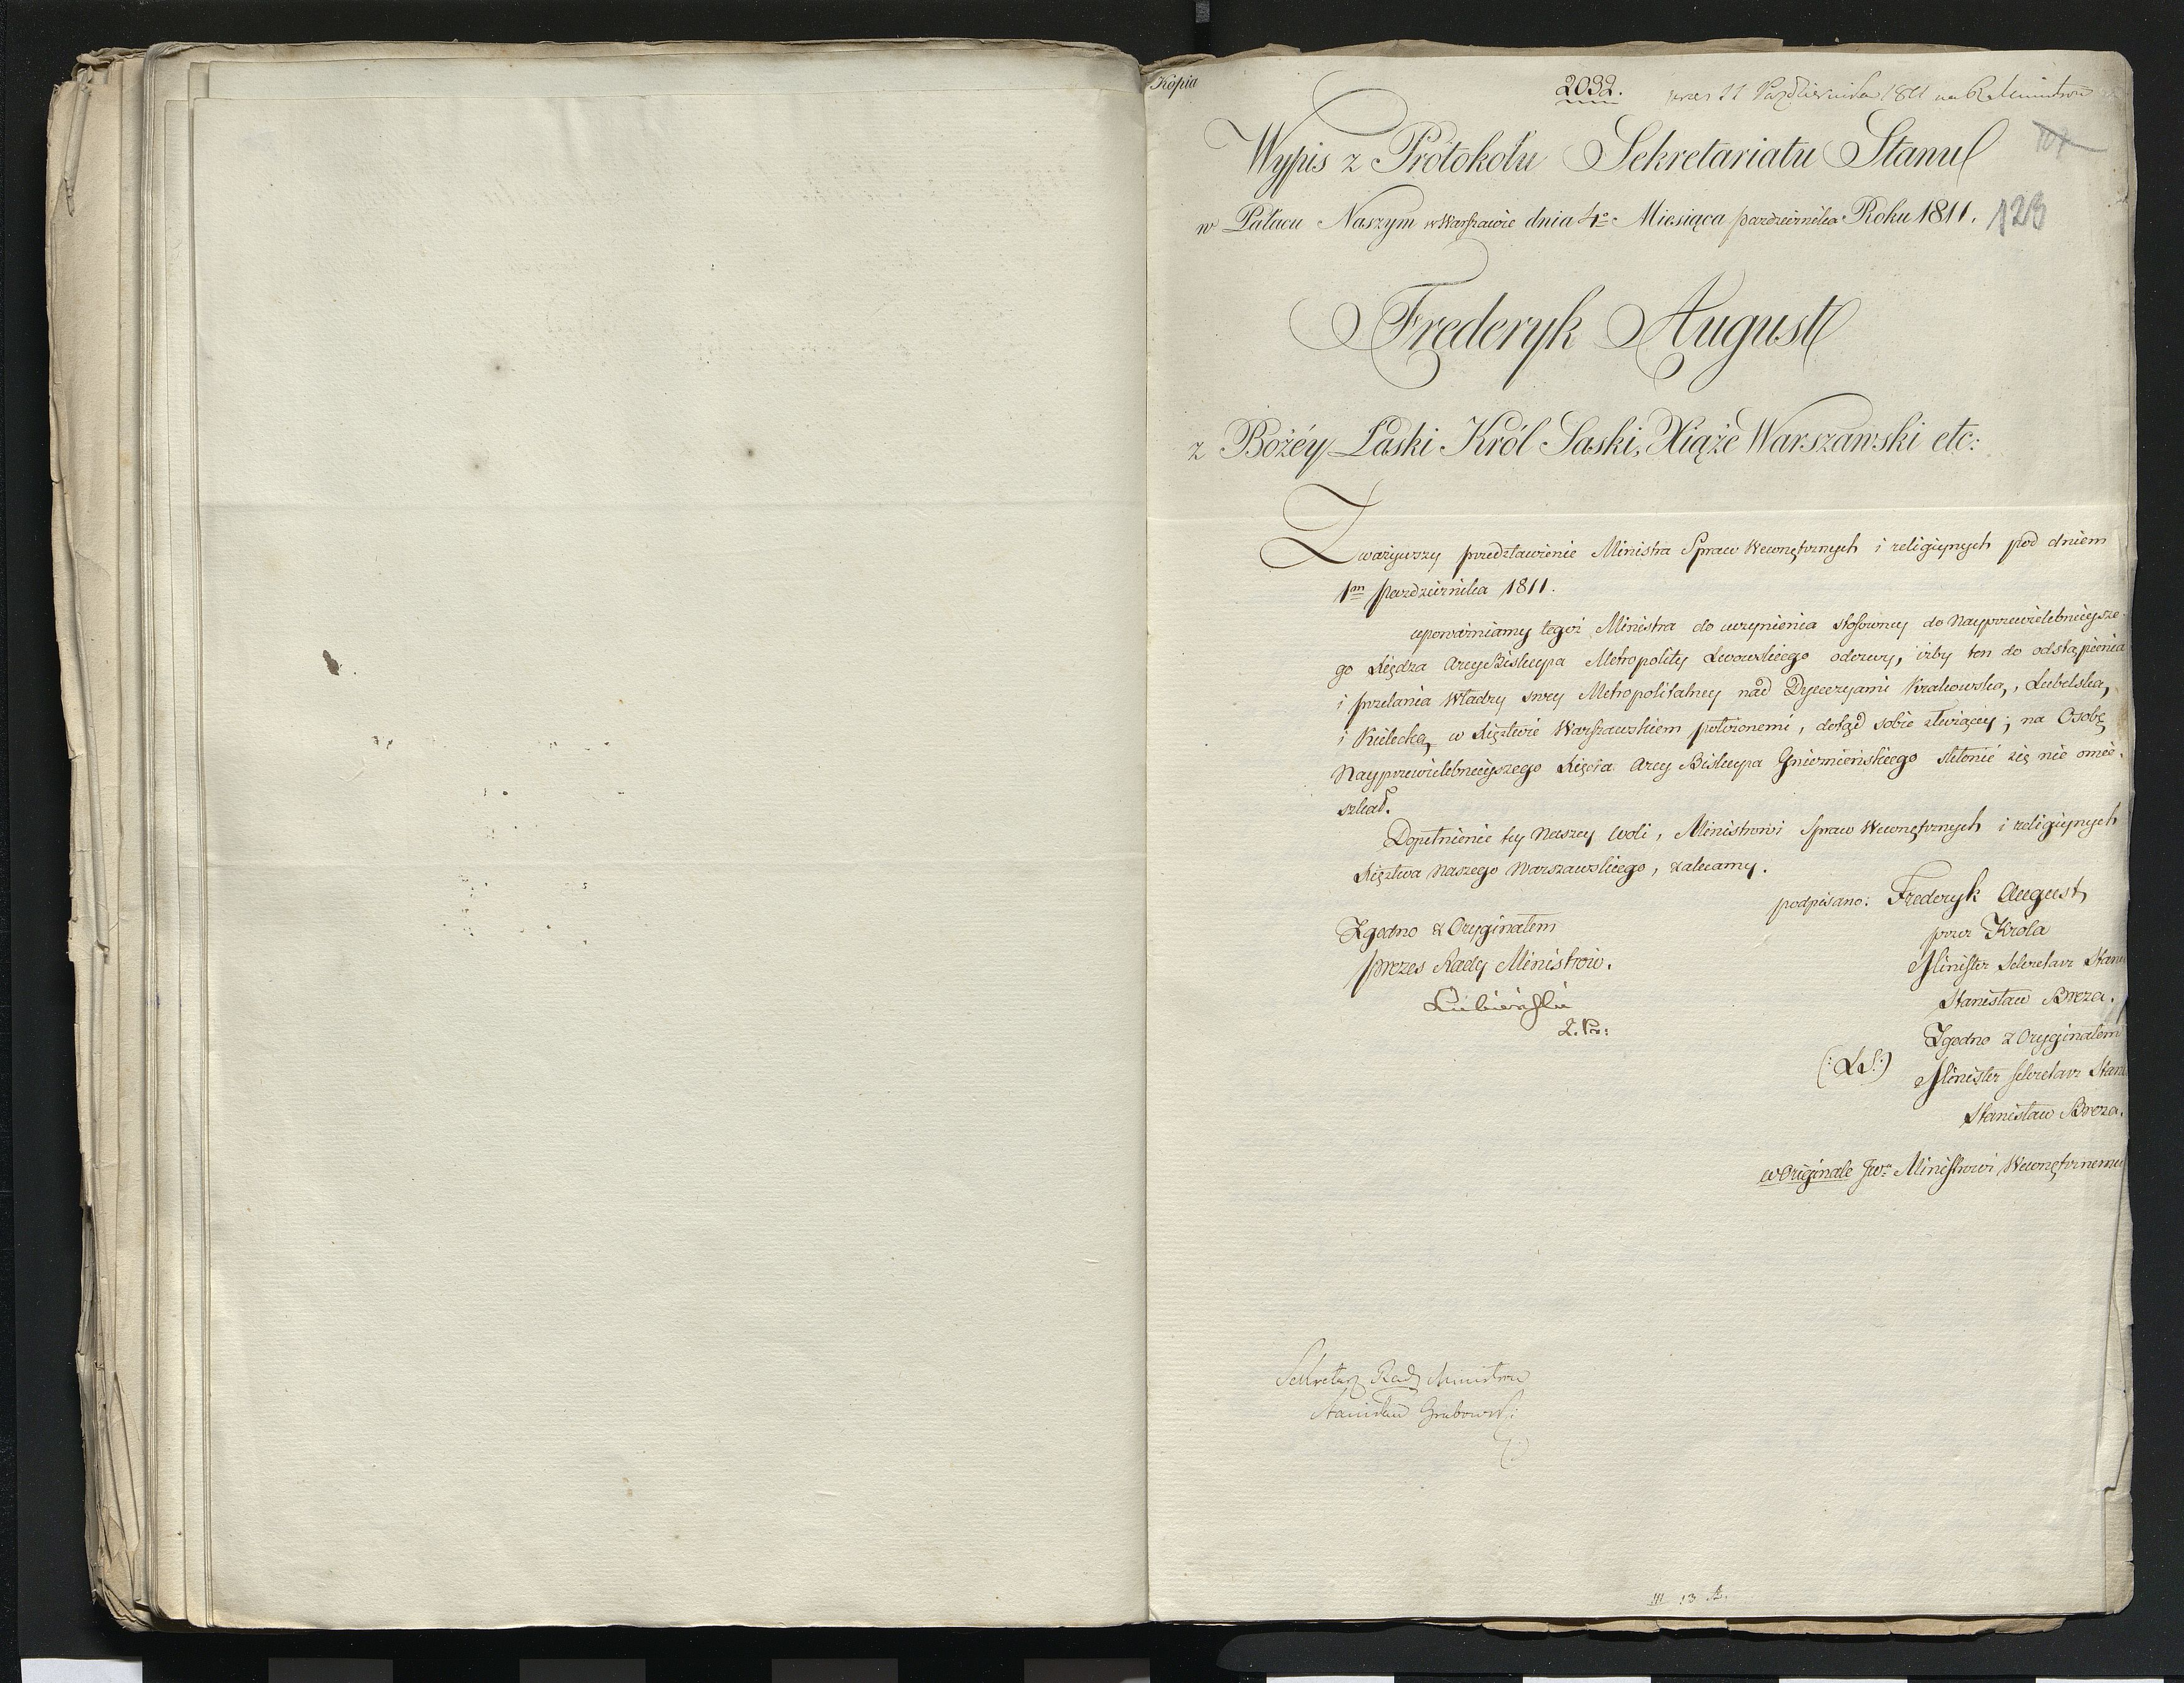 Kopia
2032.
pres 11 Października 1811 na R. Ministrów
107
Wypis z Protokołu Sekretariatu Stanu
w Pałacu Naszym w Warszawie dnia 4º Miesiąca października Roku 1811.
123
Frederyk August
z Bożéy Łaski Król Saski, Xiąże Warszawski etc:
Zważywszy przedstawienie Ministra Spraw Wewnętrznych i religijnych pod dniem
1m października 1811.
upoważniamy tegoż Ministra do uczynienia stosowney do Nayprzewielebnieysze-
go Xiędza Arcy Biskupa Metropolity Lwowskiego odezwy, iżby ten do odstąpienia
i przelania Władzy swey Metropolitalney nad Dyecezyami Krakowską, Lubelską,
i Kielecką w Xięztwie Warszawskiem położonemi, dotąd sobie służącey; na Osobę
Nayprzewielebnieyszego Xiędza Arcy Biskupa Gnieznieńskiego skłonić się nie omie-
szkał.
Dopełnienie tey Naszey woli, Ministrowi Spraw Wewnętrznych i religijnych
Xięztwa Naszego Warszawskiego, zalecamy.
podpisano: Frederyk August
przez Króla
Minister Sekretarz Stanu
Stanisław Breza.
Zgodno z Oryginałem
prezes Rady Ministrów.
Łubieński
Z. Pr:
Zgodno z Oryginałem
(:LS:) Minister Sekretarz Stanu
Stanisław Breza.
w Originale JWº Ministrowi Wewnętrznemu
Sekretarz Rady Ministrów
Stanisław Grabowski
III 13 A.